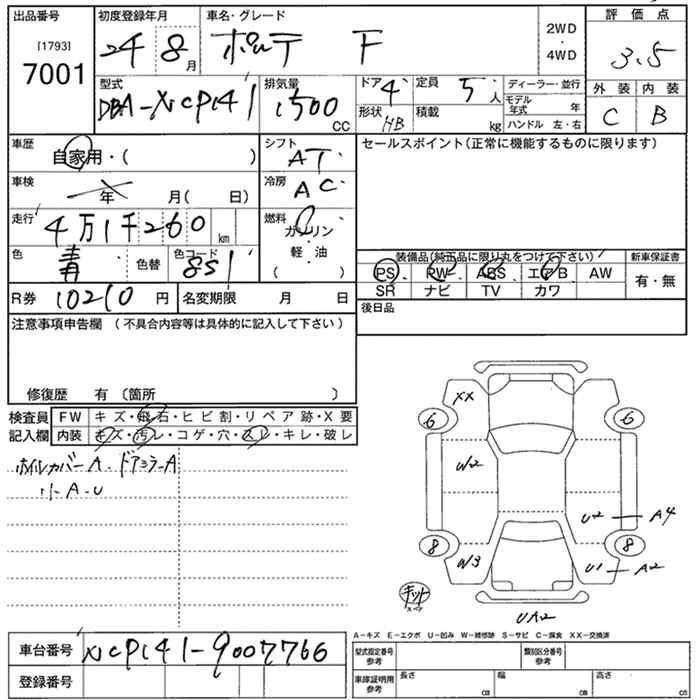 出品番号 初度登録年月 車名・グレード 評価点
[1793] 2WD
7001 24 8月 ポルテ F ・ 3.5
4WD
型式 排気量 ドア 4 定員 5人 ディーラー・並行 外装 内装
DBA-NCP141 1500CC 形状 HB 積載 kg モデル年式 年 C B
ハンドル 左・右
車歴 シフト セールスポイント(正常に機能するものに限ります)
自家用・( ) AT
車検 冷房
年 月( 日) AC
走行 燃料
4万1千260km ガソリン
色 色コード 軽・油
青 色替 851 ( )
装備品(純正品に限り丸をつけて下さい) 新車保証書
PS PW ABS エアB AW 有・無
SR ナビ TV カワ
R券 10210円 名変期限 月 日
後日品
注意事項申告欄 (不具合内容等は具体的に記入して下さい)
修復歴 有 〔箇所 〕
検査員 FW キズ・飛石・ヒビ割・リペア跡・X要
記入欄 内装 キズ・汚レ・コゲ・穴・スレ・キレ・破レ
ホイルカバーA. ドアミラーA
小A.U
XX
6 6
W2
U2 A4
8 8
W3 U1 A2
キット
スペア
UA2
A-キズ E-エクボ U-凹み W-補修跡 S-サビ C-腐食 XX-交換済
車台番号 NCP141-9007766 型式指定番号 参考 類別区分番号 参考
登録番号 車庫証明用 参考 長さ cm 幅 cm 高さ cm